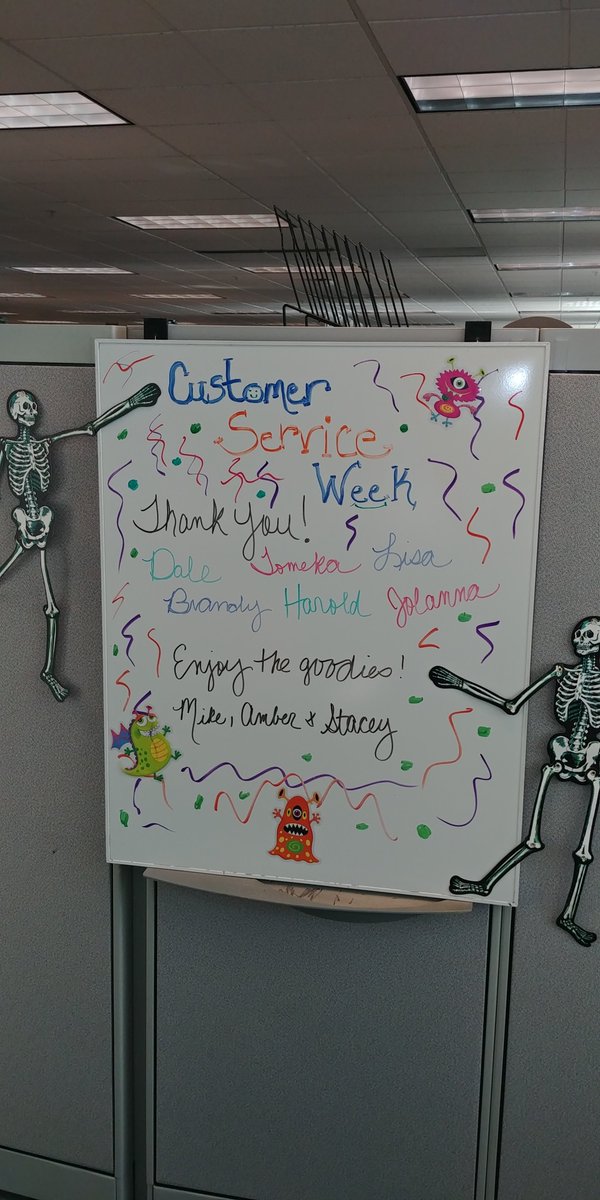 Customer
Service
Week
Thank You!
Dale Tomeka Lisa
Brandy Harold Jolanna
Enjoy the goodies!
Mike, Amber & Stacey